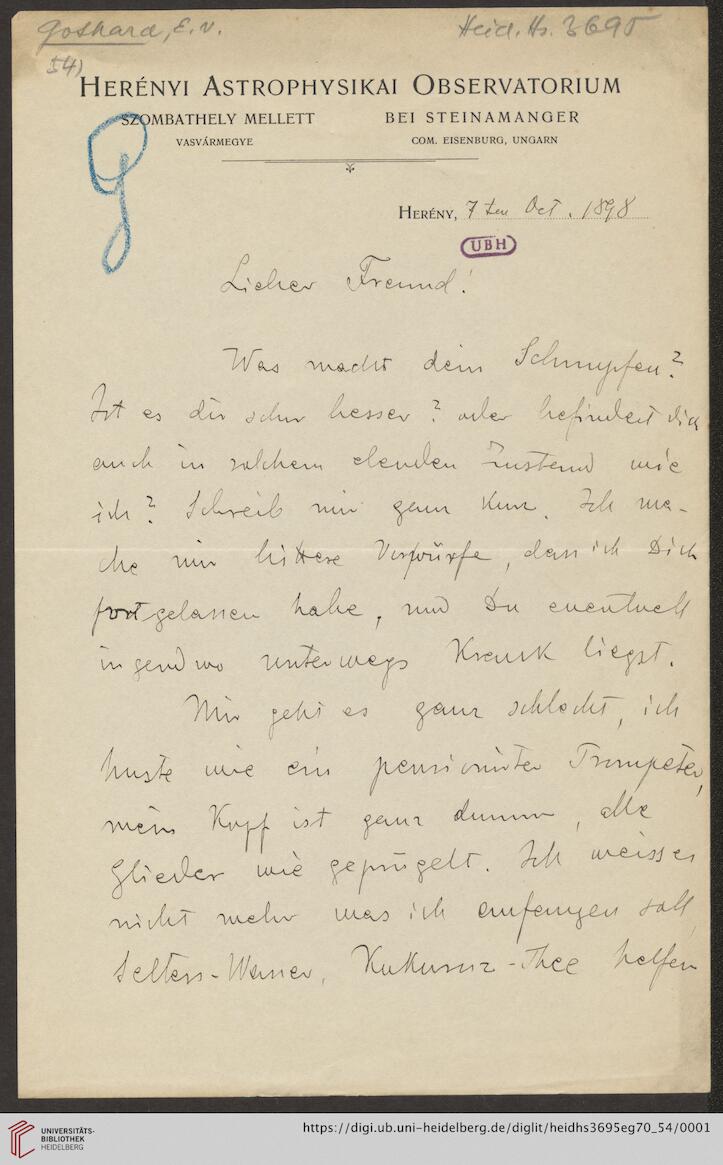 Gothard, E. v.
Heid. Hs. 3695
54)
HERÉNYI ASTROPHYSIKAI OBSERVATORIUM
SZOMBATHELY MELLETT
VASVÁRMEGYE
BEI STEINAMANGER
COM. EISENBURG, UNGARN
G
HERÉNY, 7ten Oct. 1898
UBH
Lieber Freund!
Was macht dein Schnupfen?
Ist es dir schon besser? oder befindest dich
auch in solchem elenden Zustand wie
ich? Schreib mir ganz kurz. Ich ma-
che mir bittere Vorwürfe, dass ich Dich
fortgelassen habe, und Du eventuell
irgendwo unterwegs krank liegst.
Mir geht es ganz schlecht, ich
huste wie ein pensionirter Trompeter,
mein Kopf ist ganz dumm, alle
Glieder wie geprügelt. Ich weiss es
nicht mehr was ich anfangen soll,
Selters-Wasser, Kukurutz-Thee helfen
UNIVERSITÄTS-
BIBLIOTHEK
HEIDELBERG
https://digi.ub.uni-heidelberg.de/diglit/heidhs3695eg70_54/0001